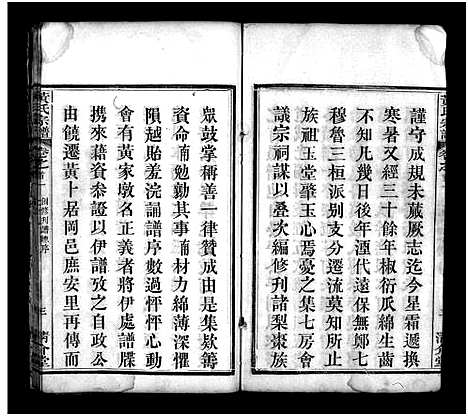 謹守成規未蕆厥志迄今星霜遞換
寒暑又經三十餘年椒衍瓜綿生齒
不知凡幾日後年湮代遠保無鄭七
穆魯三桓派别支分遷流莫知所止
族祖玉堂肇玉心焉憂之集七房會
議宗祠謀以叠次編修刊諸梨棗族
眾鼓掌稱善一律贊成由是集欵籌
資命 勉勷其事 材力綿薄深懼
隕越貽羞浣誦譜序數過怦怦心動
會有黄家墩名正義者將伊處譜牒
携來藉資叅證以伊譜攷之自政公
由饒遷黄卜居岡邑庶安里再傳而
黄氏宗譜
卷之首
創修刊譜總序
三
清介堂